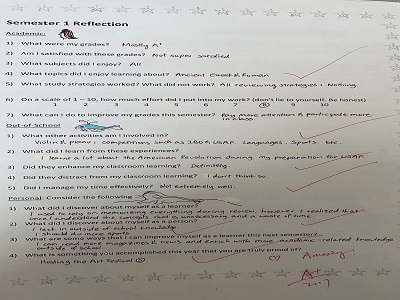 Semester 1 Reflection
Academic:
1) What were my grades? Mostly A's
2) Am I satisfied with these grades? Not super satisfied
3) What subjects did I enjoy? All
4) What topics did I enjoy learning about? Ancient Greek & Roman
5) What study strategies worked? What did not work? All reviewing strategies; Nothing
6) On a scale of 1 – 10, how much effort did I put into my work? (don't lie to yourself. Be honest)
1 2 3 4 5 6 7 8 9 10
7) What can do to improve my grades this semester? Pay more attention & participate more
in class
Out-of-school
1) What other activities am I involved in?
Violin & piano; competitions such as and USAP. Languages. Sports etc.
2) What did I learn from these experiences?
I learnt a lot about the American Revolution during my preparation for USAP
3) Did they enhance my classroom learning? Definitely
4) Did they distract from my classroom learning? I don't think so.
5) Did I manage my time effectively? Not extremely well.
Personal: Consider the following
1) What did I discover about myself as a learner?
I used to rely on memorizing everything during review, however I realized that
once I understand the concepts that is unnecessary and a waste of time
2) What did I discover about myself as a person?
I lack in outside of school knowledge
I should improve sports
3) What are some ways that I can improve myself as a learner this next semester?
I can read more magazines & news and enrich with more academic-related knowledge
outside of school
4) What is something you accomplished this year that you are truly proud of?
Hosting the Art Festival
Amazing!
A+